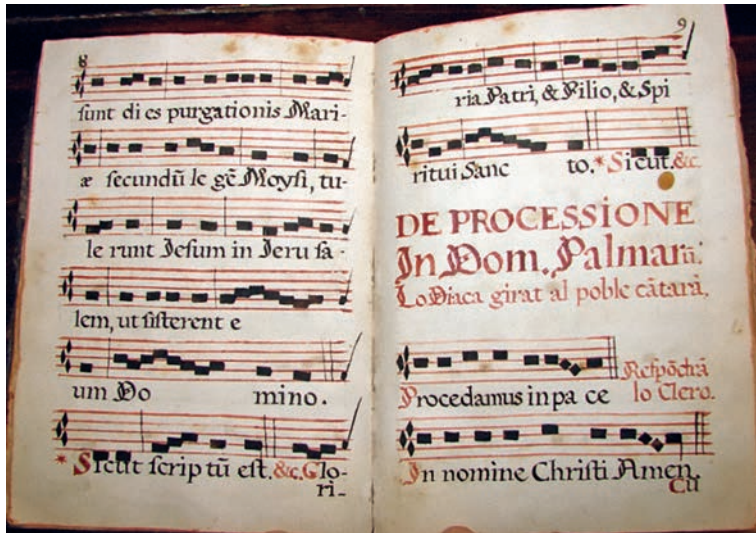 8
sunt di es purgationis Mari-
æ secundũ le gẽ Moysi, tu-
le runt Jesum in Jeru sa-
lem, ut sisterent e
um Do mino.
* Sicut scrip tũ est. &c. Glo-
ri-
9
ria Patri, & Filio, & Spi
ritui Sanc to. * Sicut. &c
DE PROCESSIONE
In Dom. Palmarũ.
Lo Diaca girat al poble cãtarà,
Procedamus in pa ce
Respõdrà
lo Clero.
In nomine Christi Amen.
Cũ